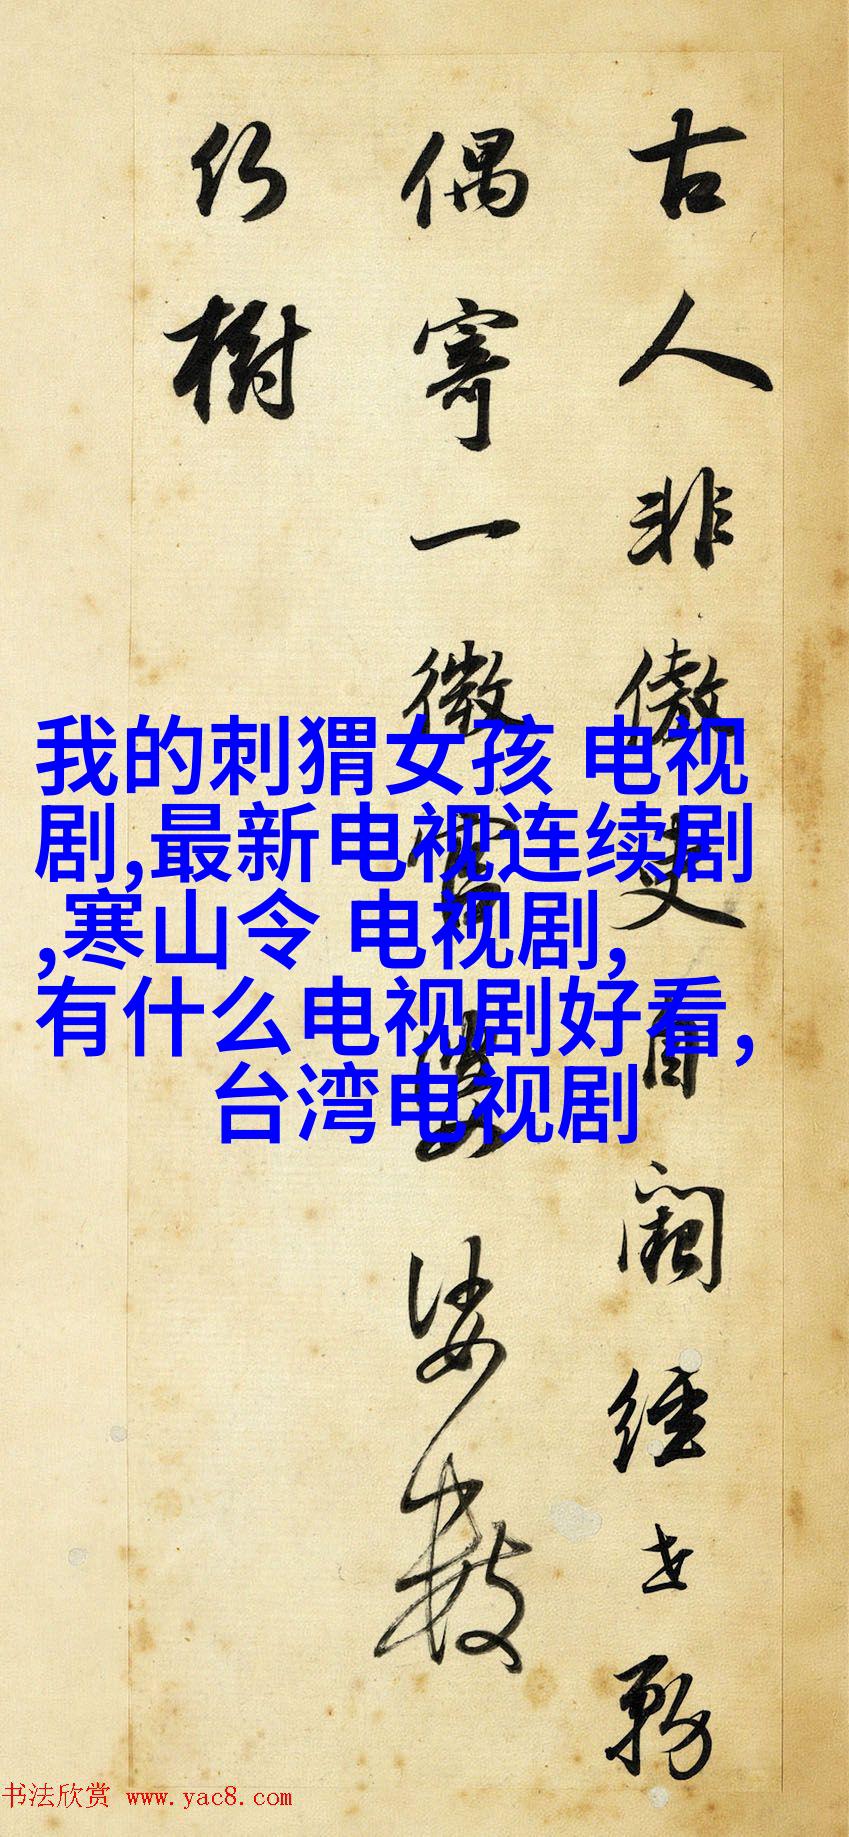 古人非傲吏自阙经世务
偶寄一微官婆娑数
仍树
我的刺猬女孩 电视
剧,最新电视连续剧
,寒山令 电视剧,
有什么电视剧好看,
台湾电视剧
书法欣赏 www.yac8.com